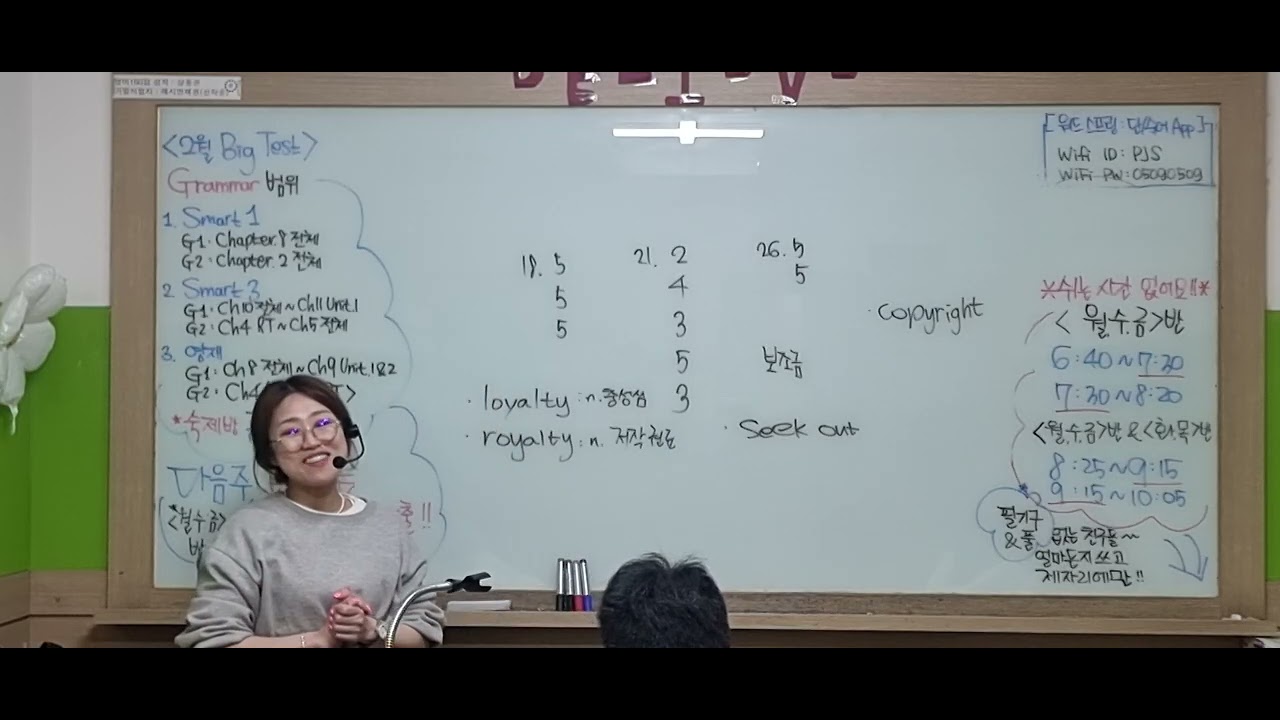 <2월 Big Test>
Grammar 범위
1. Smart 1
G1: Chapter.8 전체
G2: Chapter.2 전체
2. Smart 3
G1: Ch10 전체~Ch11 Unit.1
G2: Ch4 RT~Ch5 전체
3. 영재
G1: Ch8 전체~Ch9 Unit.1&2
G2: Ch4
*숙제방
다음주
<월수금>
반
출!!
18. 5
5
5
21. 2
4
3
5
3
26. 5
5
보조금
· copyright
· loyalty : n. 충성심
· royalty : n. 저작권료
· Seek out
[워드스프링 : 단어 App]
Wifi ID : PJS
WiFi PW : 05090509
*쉬는 시간 없어요!!*
<월.수.금>반
6:40~7:30
7:30~8:20
<월.수.금>반 & <화.목>반
8:25~9:15
9:15~10:05
필기구
&풀 없는 친구들~~
얼마든지 쓰고
제자리에만!!